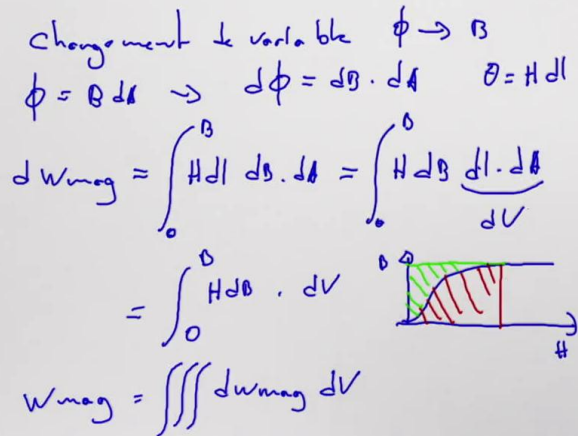 changement de variable ϕ → B
ϕ = B dA → dϕ = dB · dA θ = H dl
d Wmag = ∫₀ᴮ H dl dB . dA = ∫₀ᴮ H dB dl . dA
dV
= ∫₀ᴮ H dB . dV
B
H
Wmag = ∭ dwmag dV